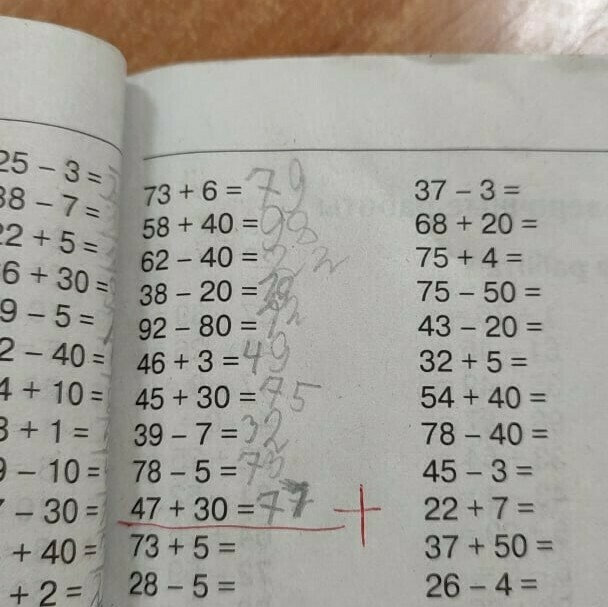 25 – 3 =
38 – 7 =
22 + 5 =
6 + 30 =
9 – 5 =
2 – 40 =
4 + 10 =
3 + 1 =
9 – 10 =
– 30 =
+ 40 =
+ 2 =
73 + 6 = 79
58 + 40 = 98
62 – 40 = 22
38 – 20 =
92 – 80 = 12
46 + 3 = 49
45 + 30 = 75
39 – 7 = 32
78 – 5 = 73
47 + 30 = 77 +
73 + 5 =
28 – 5 =
37 – 3 =
68 + 20 =
75 + 4 =
75 – 50 =
43 – 20 =
32 + 5 =
54 + 40 =
78 – 40 =
45 – 3 =
22 + 7 =
37 + 50 =
26 – 4 =